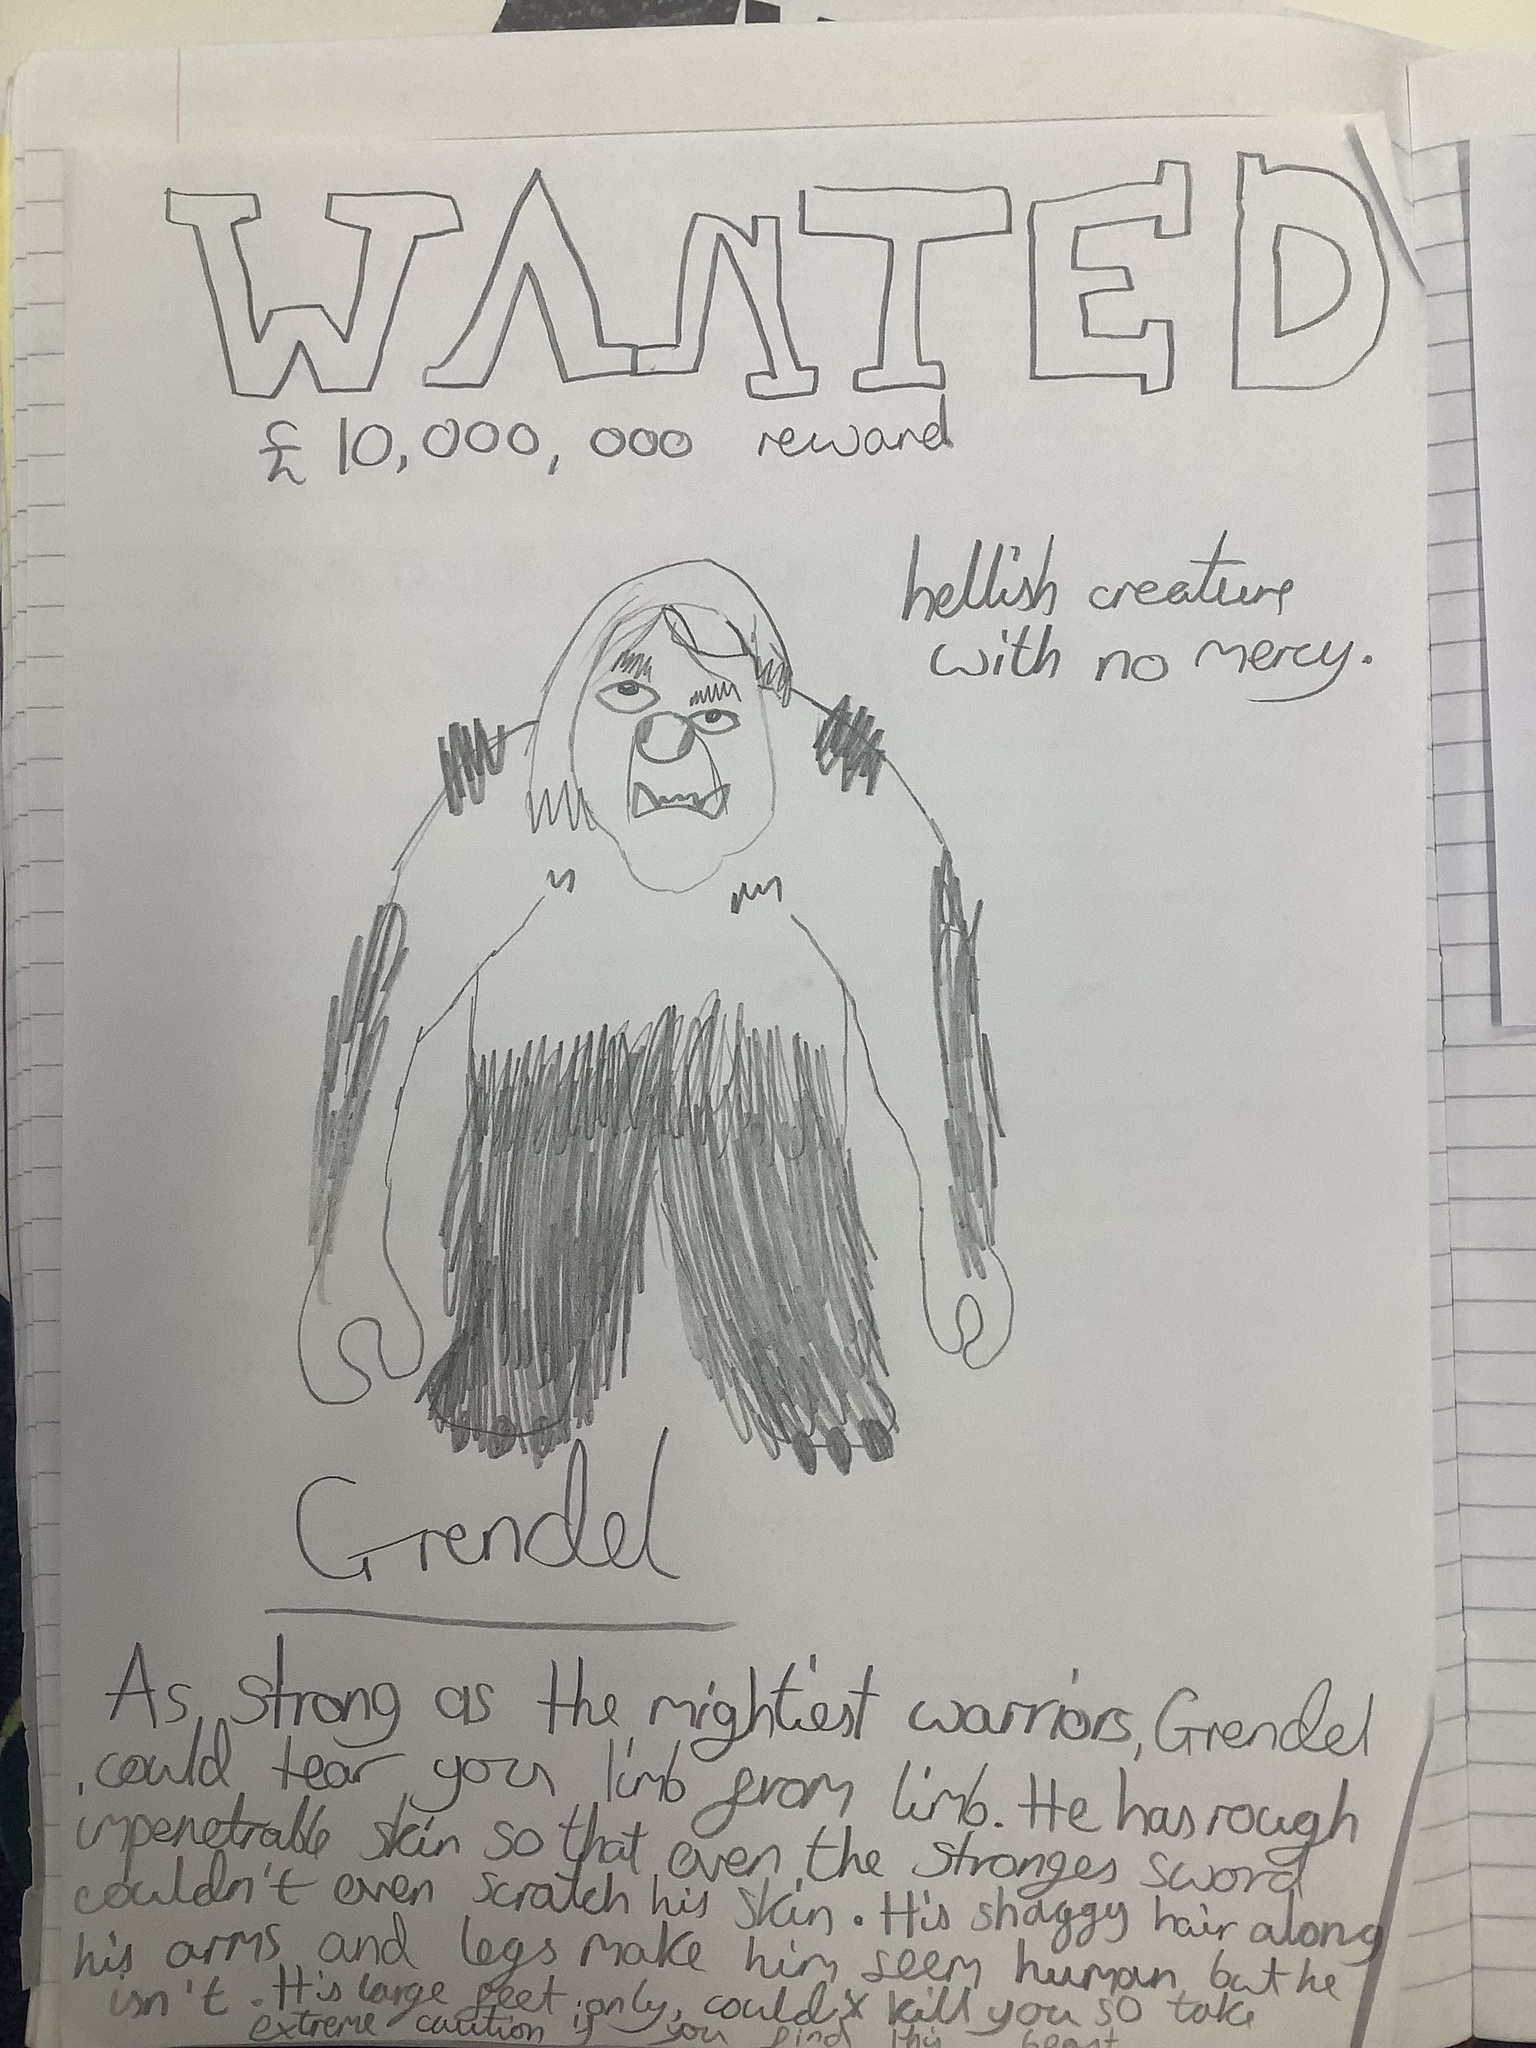 WANTED
£10,000,000 reward
hellish creature
with no mercy.
Grendel
As strong as the mightiest warriors, Grendel
could tear you limb from limb. He has rough
impenetrable skin so that even the stronges sword
couldn't even scratch his skin. His shaggy hair along
his arms and legs make him seem human but he
isn't. His large feet only, could kill you so take
extreme caution if you find this beast